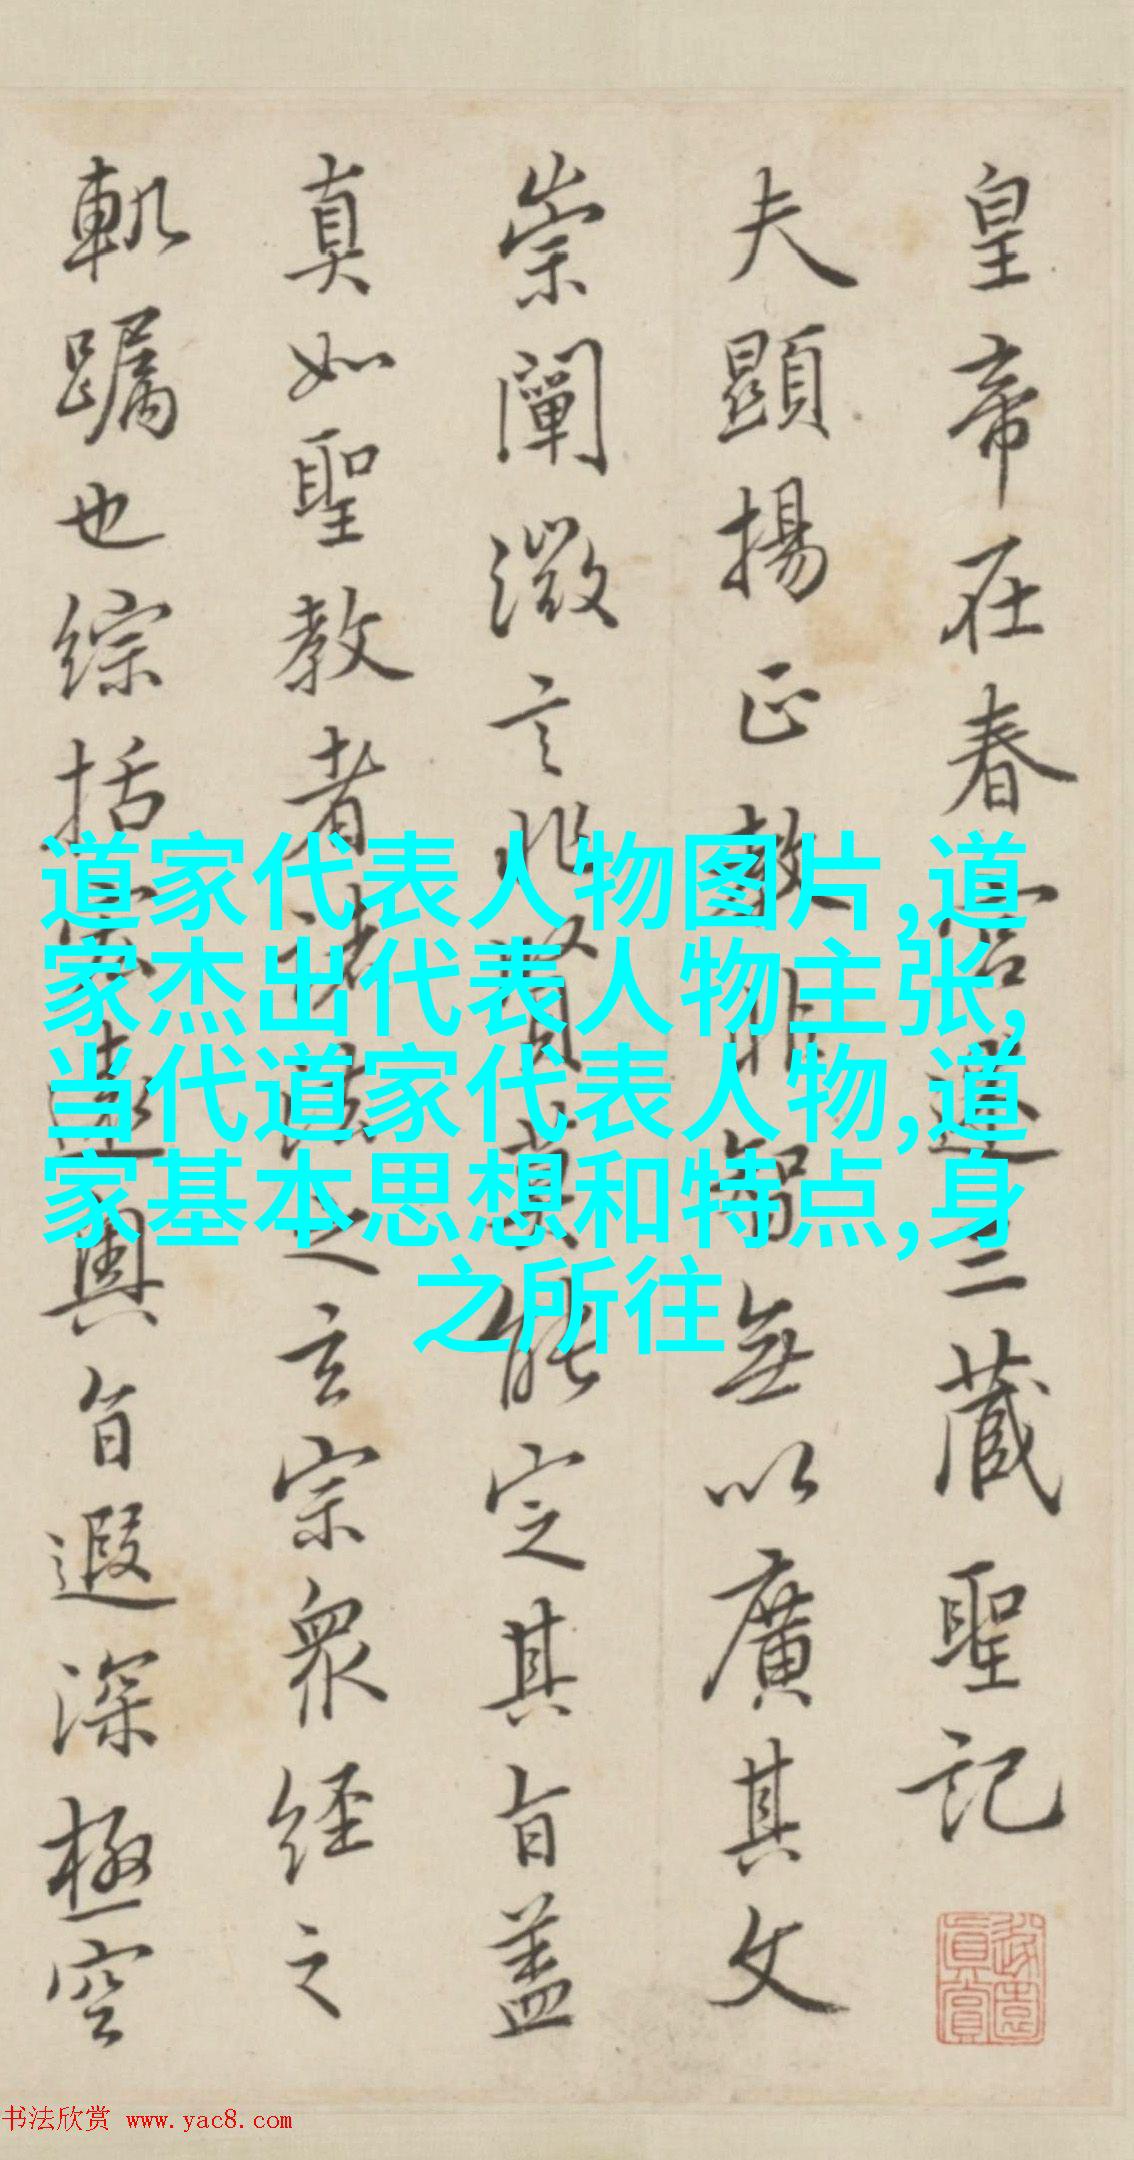 皇帝在春宮述三藏聖記
夫顯揚正教非智無以廣其文
崇闡微言非賢莫能定其旨蓋
真如聖教者諸法之玄宗眾經之
軌躅也綜括宏遠奧旨遐深極空
道家代表人物图片,道
家杰出代表人物主张,
当代道家代表人物,道
家基本思想和特点,身
之所往
书法欣赏 www.yac8.com